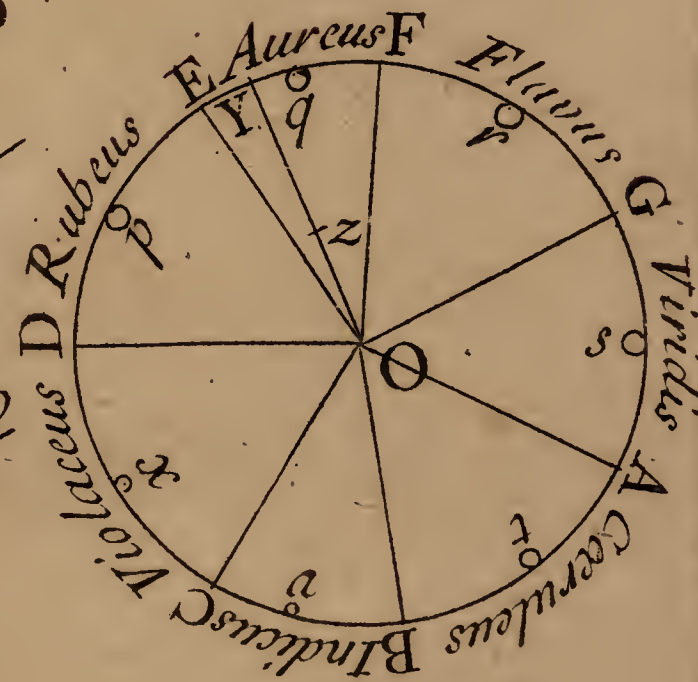 D
Rubeus
E
Aureus
F
Flavus
G
Viridis
A
Cœruleus
B
Indicus
C
Violaceus
p
Y
q
r
s
t
v
x
z
O